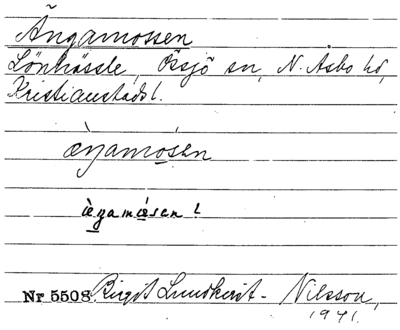 Ängamossen
Lönhässle, Össjö sn, N. Åsbo hd,
Kristianstads l.
æ̀ŋamo̲sen
è̲ŋamo̲sen !
Nr 5508 Birgit Lundkvist - Nilsson,
1941.